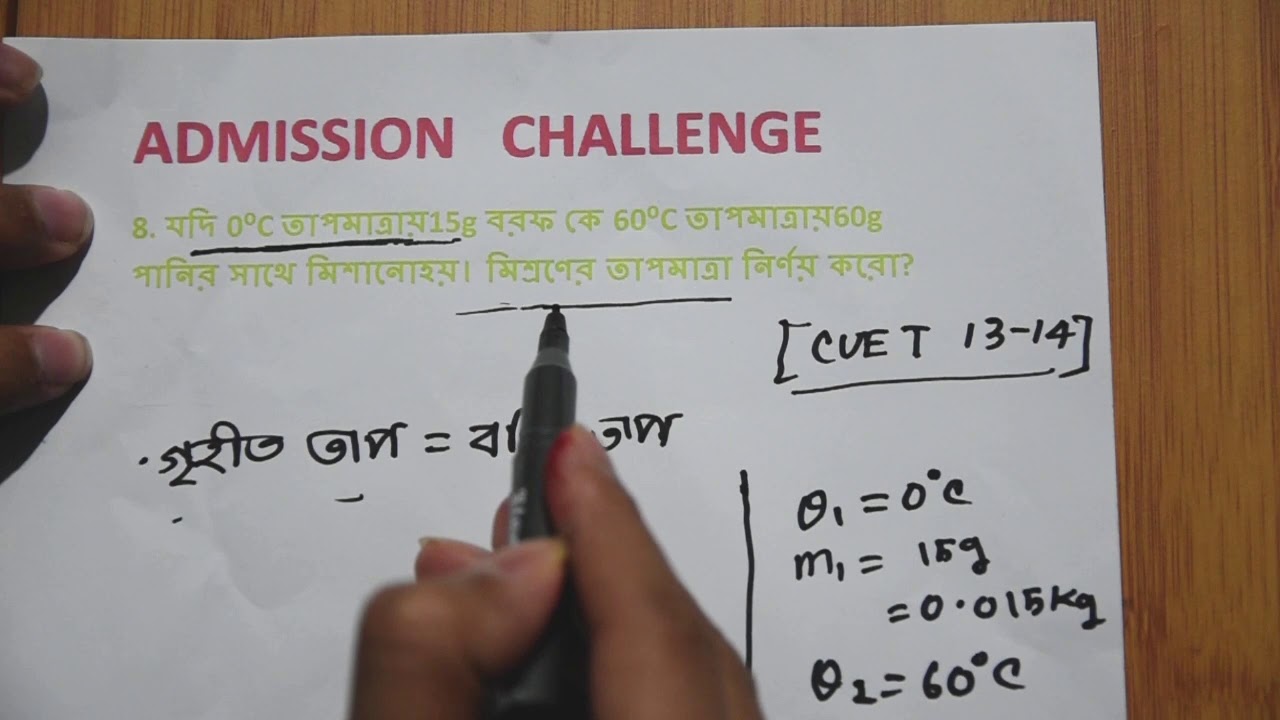 ADMISSION CHALLENGE
8. যদি 0⁰C তাপমাত্রায়15g বরফ কে 60⁰C তাপমাত্রায়60g
পানির সাথে মিশানোহয়। মিশ্রণের তাপমাত্রা নির্ণয় করো?
[CUET 13-14]
গৃহীত তাপ =
θ₁ = 0°C
m₁ = 15g
= 0.015Kg
θ₂ = 60°C